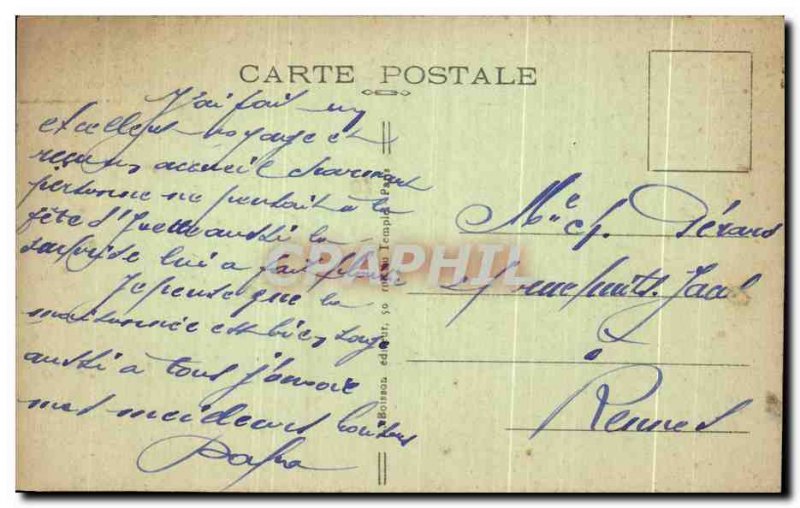 CARTE POSTALE
J'ai fait un
excellent voyage et
reçu un accueil charmant
personne ne pensait à la
fête d'Yvette aussi la
surprise lui a fait plaisir
Je pense que la
maisonnée est bien sage
aussi à tous j'envoie
mes meilleurs baisers
Papa
Boisson éditeur, 50 rue du Temple, Paris
CPAPHIL
Mlle Ch. Gérard
Rennes